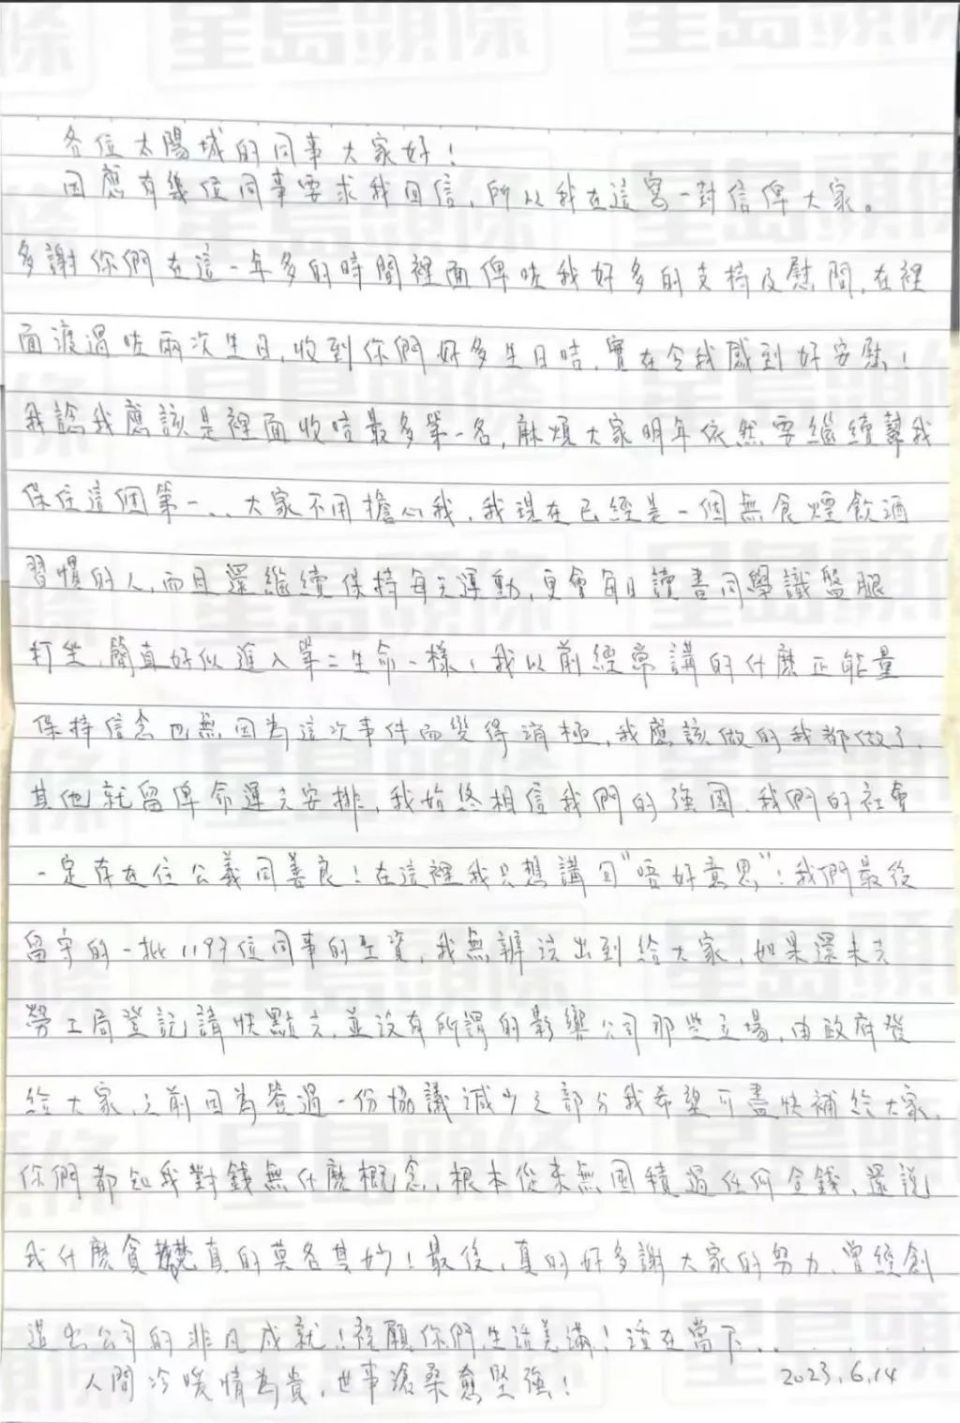 各位太陽城的同事大家好！
因應有幾位同事要求我回信，所以我在這寫一封信俾大家。
多謝你們在這一年多的時間裡面俾咗我好多的支持及慰問，在裡
面渡過咗兩次生日，收到你們好多生日咭，實在令我感到好安慰！
我諗我應該是裡面收咭最多第一名，麻煩大家明年依然要繼續幫我
保住這個第一... 大家不用擔心我，我現在已經是一個無食煙飲酒
習慣的人，而且還繼續保持每天運動，更會每日讀書同學識盤腿
打坐，簡直好似進入第二生命一樣！我以前經常講的什麼正能量
保持信念也無因為這次事件而變得消極，我應該做的我都做了，
其他就留俾命運去安排，我始終相信我們的強國，我們的社會
一定存在住公義同善良！在這裡我只想講句"唔好意思"！我們最後
留守的一批1197位同事的工資，我無辦法出到給大家，如果還未去
勞工局登記請快點去，並沒有所謂的影響公司那些立場，由政府發
給大家，之前因為簽過一份協議減少之部分我希望可盡快補給大家，
你們都知我對錢無什麼概念，根本從來無囤積過任何金錢，還說
我什麼貪婪，真的莫名其妙！最後，真的好多謝大家的努力，曾經創
造出公司的非凡成就！祝願你們生活美滿！活在當下........
人間冷暖情為貴，世事滄桑愈堅強！
2023.6.14
星島頭條